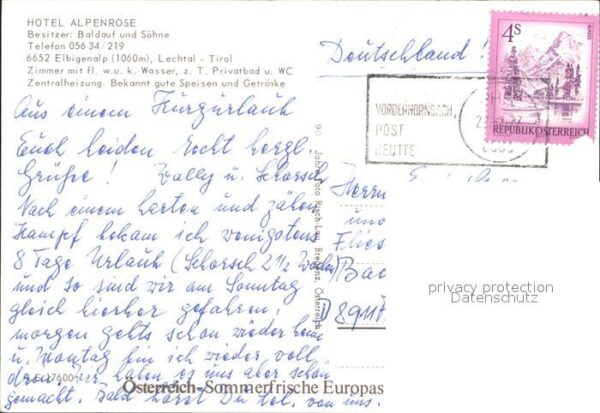 HOTEL ALPENROSE
Besitzer: Baldauf und Söhne
Telefon 056 34 / 219
6652 Elbigenalp (1060m), Lechtal - Tirol
Zimmer mit fl. w. u. k. Wasser, z. T. Privatbad u. WC
Zentralheizung. Bekannt gute Speisen und Getränke
Deutschland!
4s
REPUBLIK ÖSTERREICH
VORDERHORNBACH,
POST
REUTTE
Aus einem Kurzurlaub
Euch beiden recht herzl.
Grüße! Wally u. Schorsch
Nach einem harten und zähen
Kampf bekam ich wenigstens
8 Tage Urlaub (Schorsch 2 1/2 Wochen)
und so sind wir am Sonntag
gleich hierher gefahren,
morgen gehts schon wieder heim
u. Montag bin ich wieder voll
dran. Wir haben es uns aber schön
gemacht. Bald hörst Du tel. von uns.
Herrn
und
Flies
Bad
D 8911
privacy protection
Datenschutz
Österreich-Sommerfrische Europas